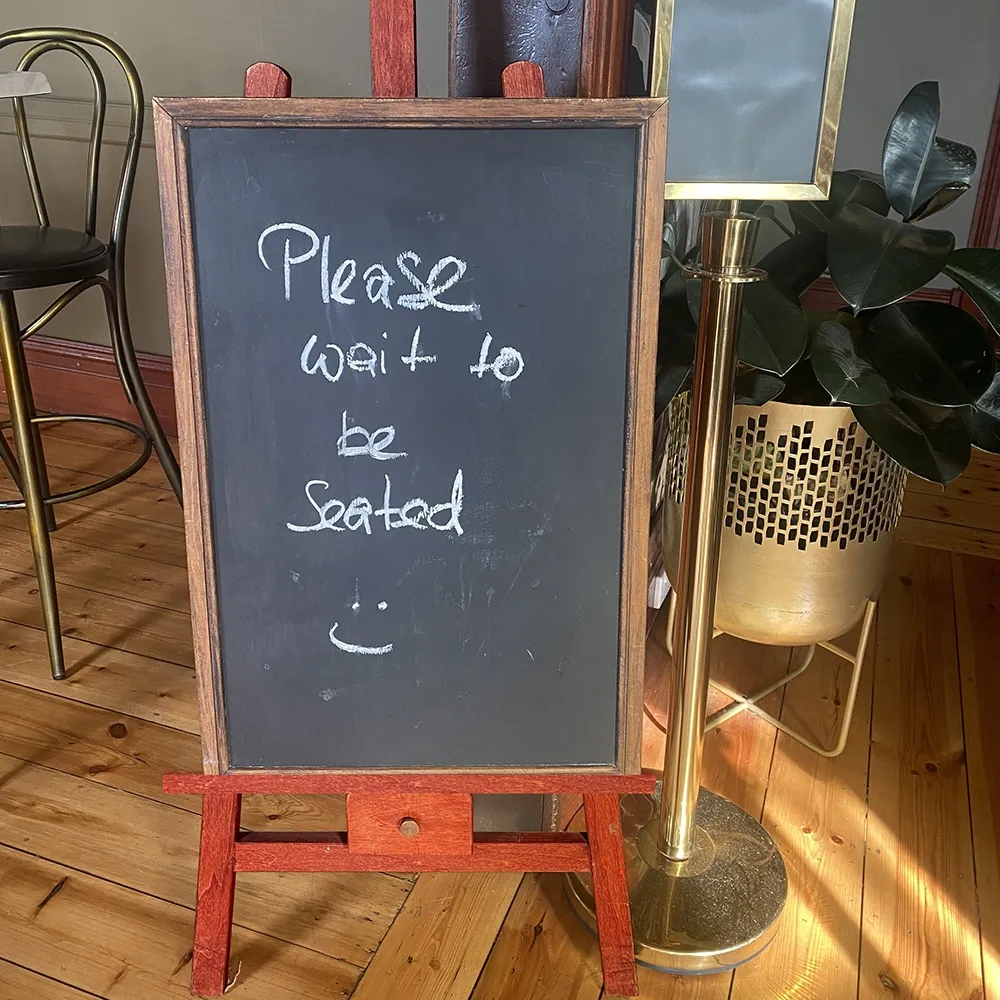 Please
wait to
be
Seated